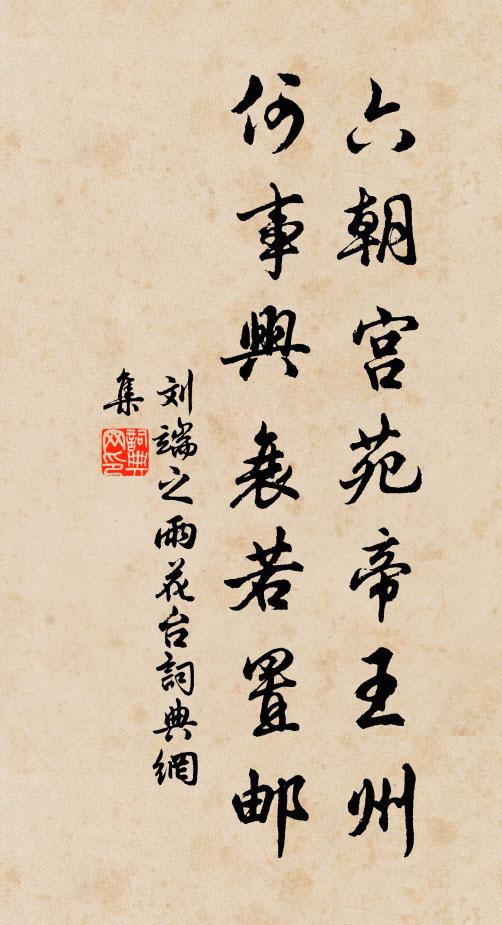 六朝宫苑帝王州
何事興衰若置邮
刘端之雨花台詞典網
集
詞典網印